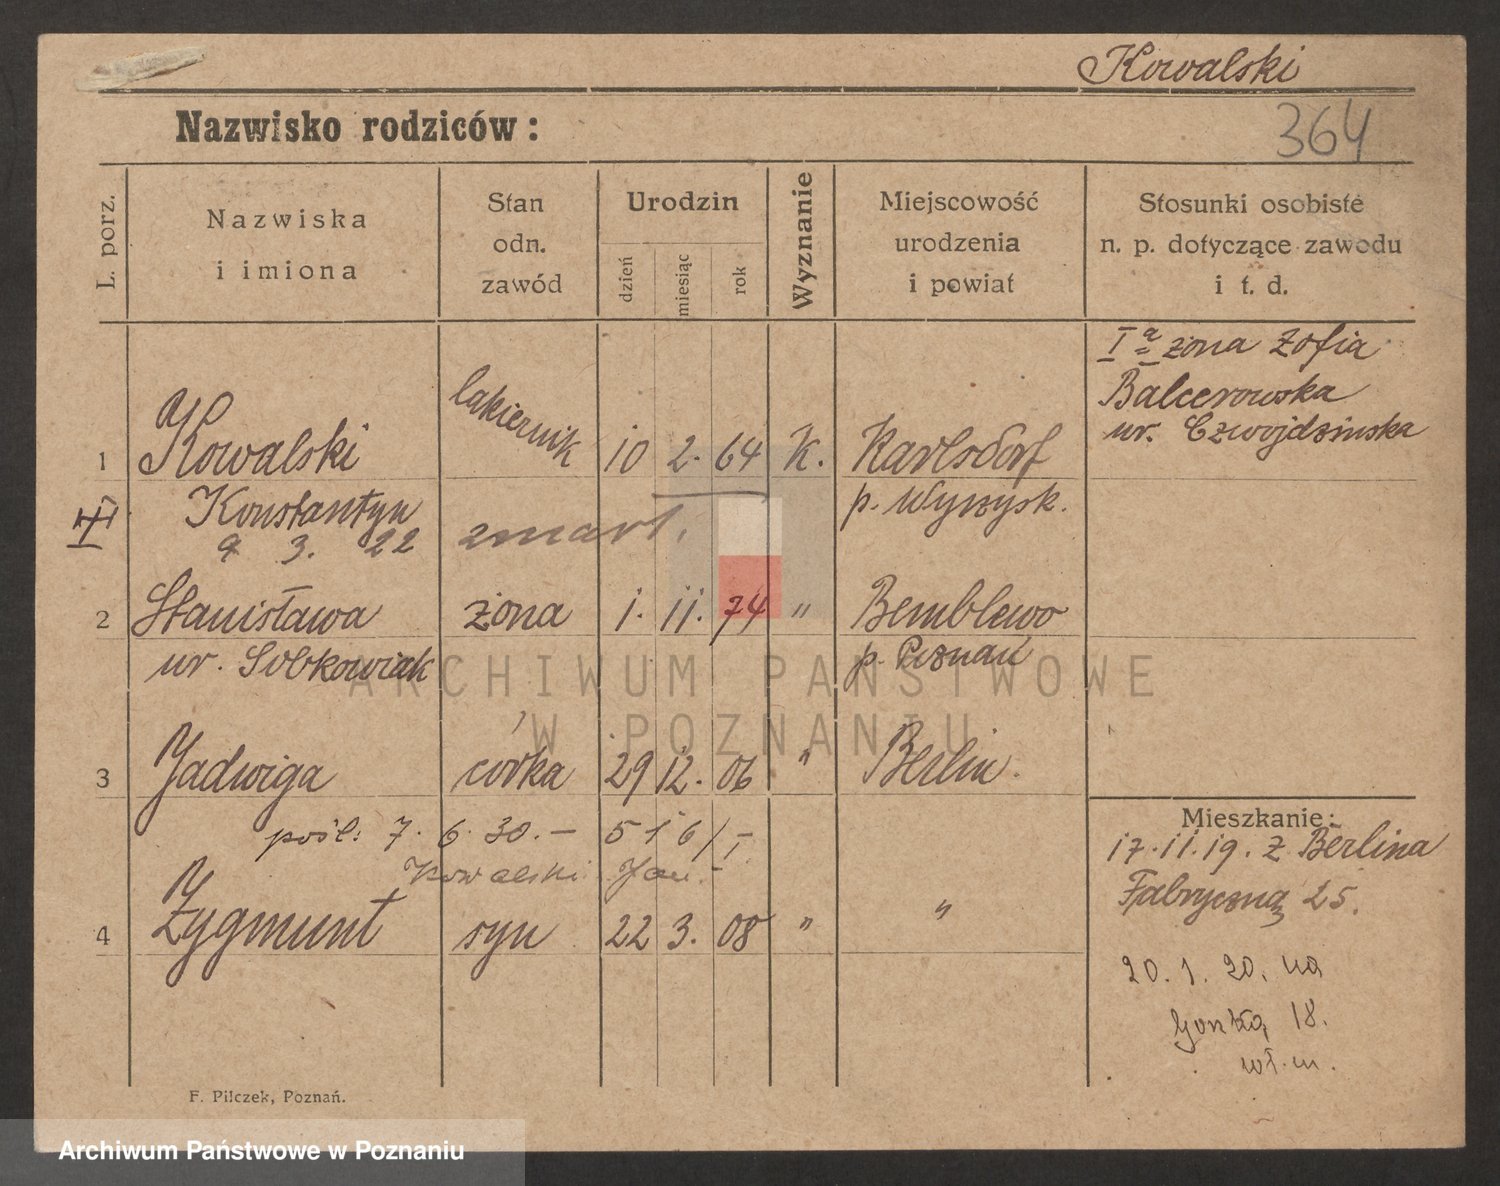 Kowalski
Nazwisko rodziców:
364
L. porz.
Nazwiska
i imiona
Stan
odn.
zawód
Urodzin
dzień
miesiąc
rok
Wyznanie
Miejscowość
urodzenia
i powiat
Stosunki osobiste
n. p. dotyczące zawodu
i t. d.
Iª żona Zofia
Balcerowska
ur. Czwojdzinska
1 Kowalski lakiernik 10 2. 64 K. Karlsdorf
Konstantyn p. Wyrzysk.
9 3. 22 zmarł.
2 Stanisława żona 1. 11. 74 " Bemblewo
ur. Sobkowiak p. Poznań
3 Jadwiga córka 29 12. 06 " Berlin.
pośl: 7. 6. 30. – 516/I
Kowalski Jan
4 Zygmunt syn 22 3. 08 " "
Mieszkanie:
17.11.19. z Berlina
Fabryczną 25.
20. 1. 20. na
18.
wł. m.
F. Pilczek, Poznań.
ARCHIWUM PAŃSTWOWE
W POZNANIU
Archiwum Państwowe w Poznaniu